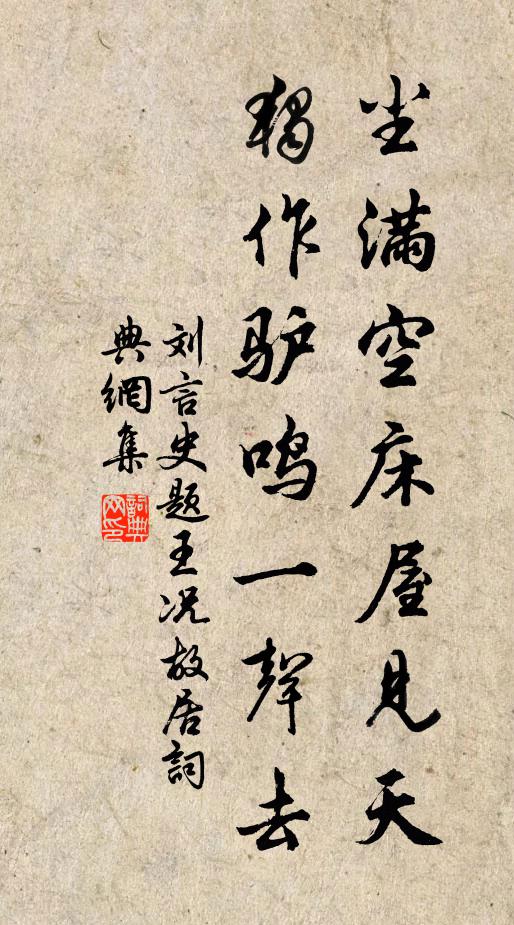 尘满空床屋见天
独作驴鸣一聲去
刘言史题王况故居詞
典網集
詞典网印